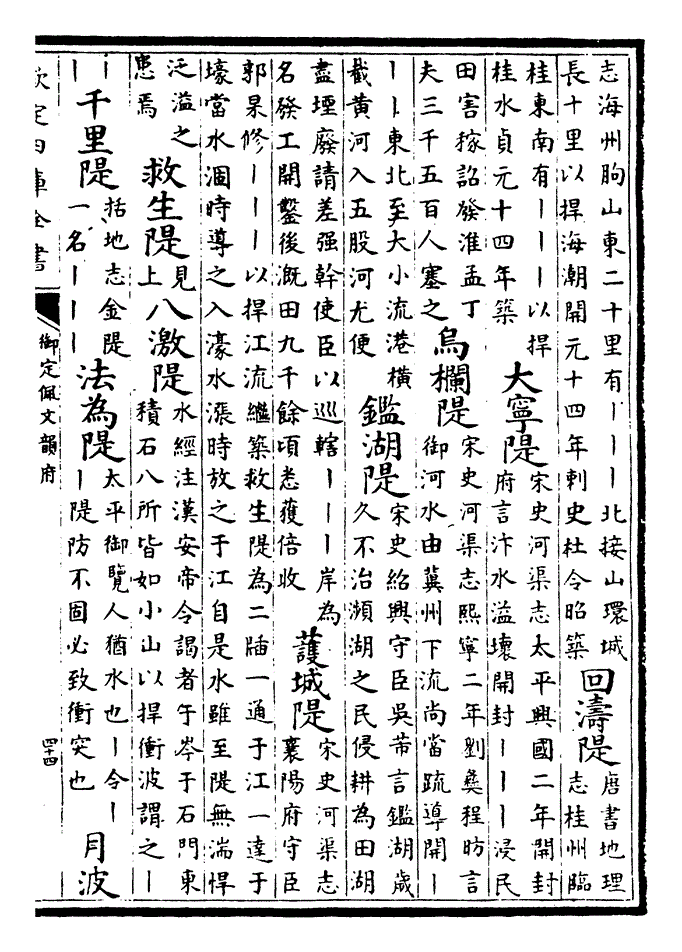 志海州朐山東二十里有丨丨丨北接山環城
長十里以捍海潮開元十四年刺史杜令昭築
回濤隄
唐書地理
志桂州臨
桂東南有丨丨丨以捍
桂水貞元十四年築
大寧隄
宋史河渠志太平興國二年開封
府言汴水溢壞開封丨丨丨浸民
田害稼詔發淮孟丁
夫三千五百人塞之
烏欄隄
宋史河渠志熙寧二年劉彝程昉言
御河水由冀州下流尚當疏導開丨
丨丨東北至大小流港橫
截黄河入五股河尤便
鑑湖隄
宋史紹興守臣吳芾言鑑湖歲
久不治瀕湖之民侵耕為田湖
盡堙廢請差强幹使臣以巡轄丨丨丨岸為
名發工開鑿後溉田九千餘頃悉獲倍收
護城隄
宋史河渠志
襄陽府守臣
郭杲修丨丨丨以捍江流繼築救生隄為二牐一通于江一達于
壕當水涸時導之入濠水漲時放之于江自是水雖至隄無湍悍
泛溢之
患焉
救生隄
見
上
八激隄
水經注漢安帝令謁者于岑于石門東
積石八所皆如小山以捍衝波謂之丨
丨
丨
千里隄
括地志金隄
一名丨丨丨
法為隄
太平御覽人猶水也丨令丨
丨隄防不固必致衝突也
月波
欽定四庫全書
御定佩文韻府
四十四